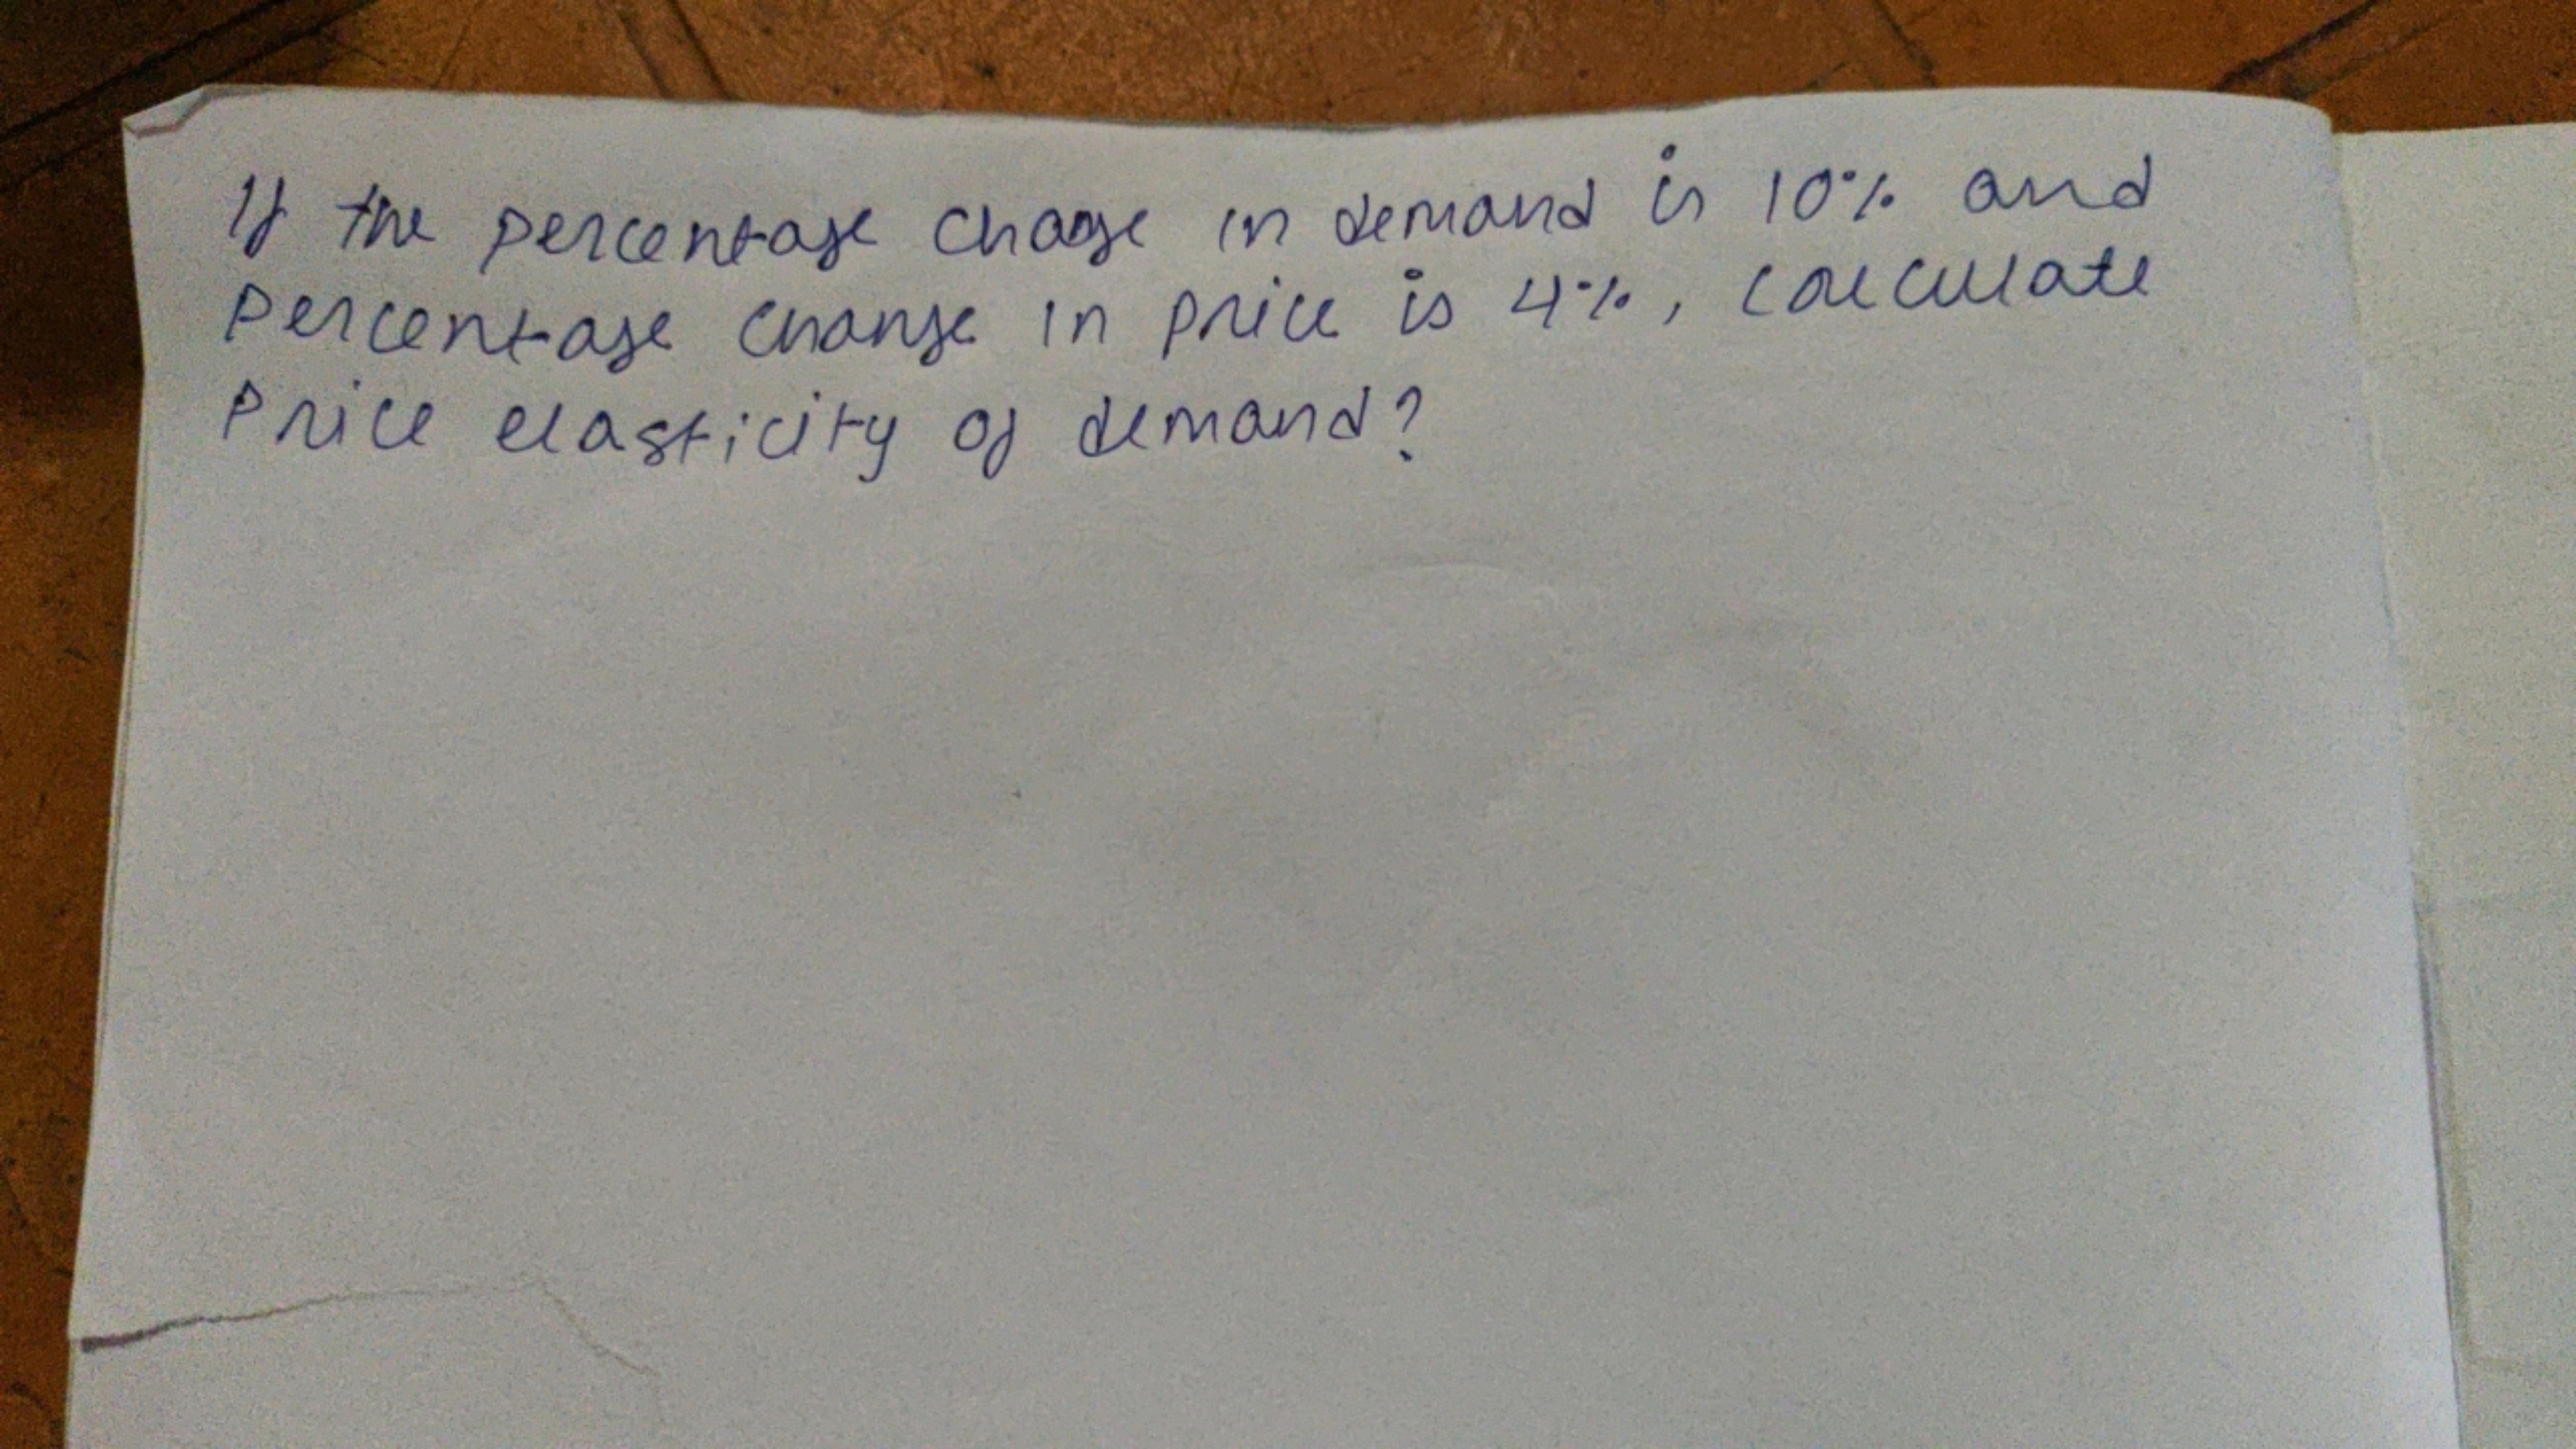 If the percentage chage in demand is 10% and
percentage change in price is 4%, calculate
Price elasticity of demand?